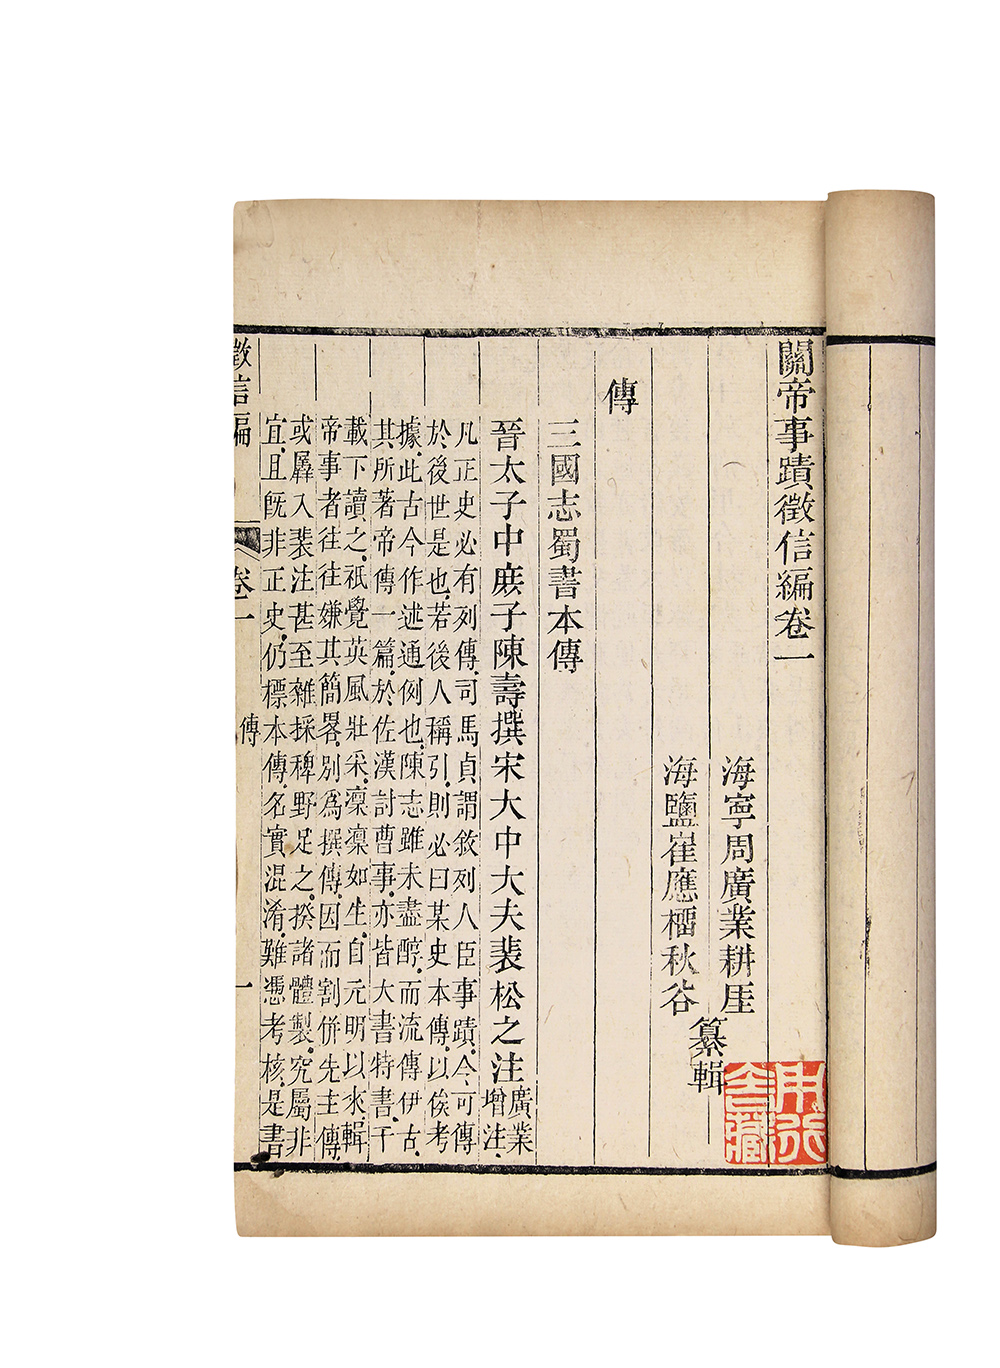 關帝事蹟徵信編卷一
海寧周廣業耕厓
海鹽崔應榴秋谷
纂輯
傳
三國志蜀書本傳
晉太子中庶子陳壽撰宋大中大夫裴松之注廣業
增注
凡正史必有列傳司馬貞謂敘列人臣事蹟令可傳
於後世是也若後人稱引則必曰某史本傳以俟考
據此古今作述通例也陳志雖未盡醇而流傳伊古
其所著帝傳一篇於佐漢討曹事亦皆大書特書千
載下讀之祇覺英風壯采凜凜如生自元明以來輯
帝事者往往嫌其簡畧別爲撰傳因而割併先主傳
或羼入裴注甚至雜採稗野足之揆諸體製究屬非
宜且旣非正史仍標本傳名實混淆難憑考核是書
徵信編
卷一
傳
一